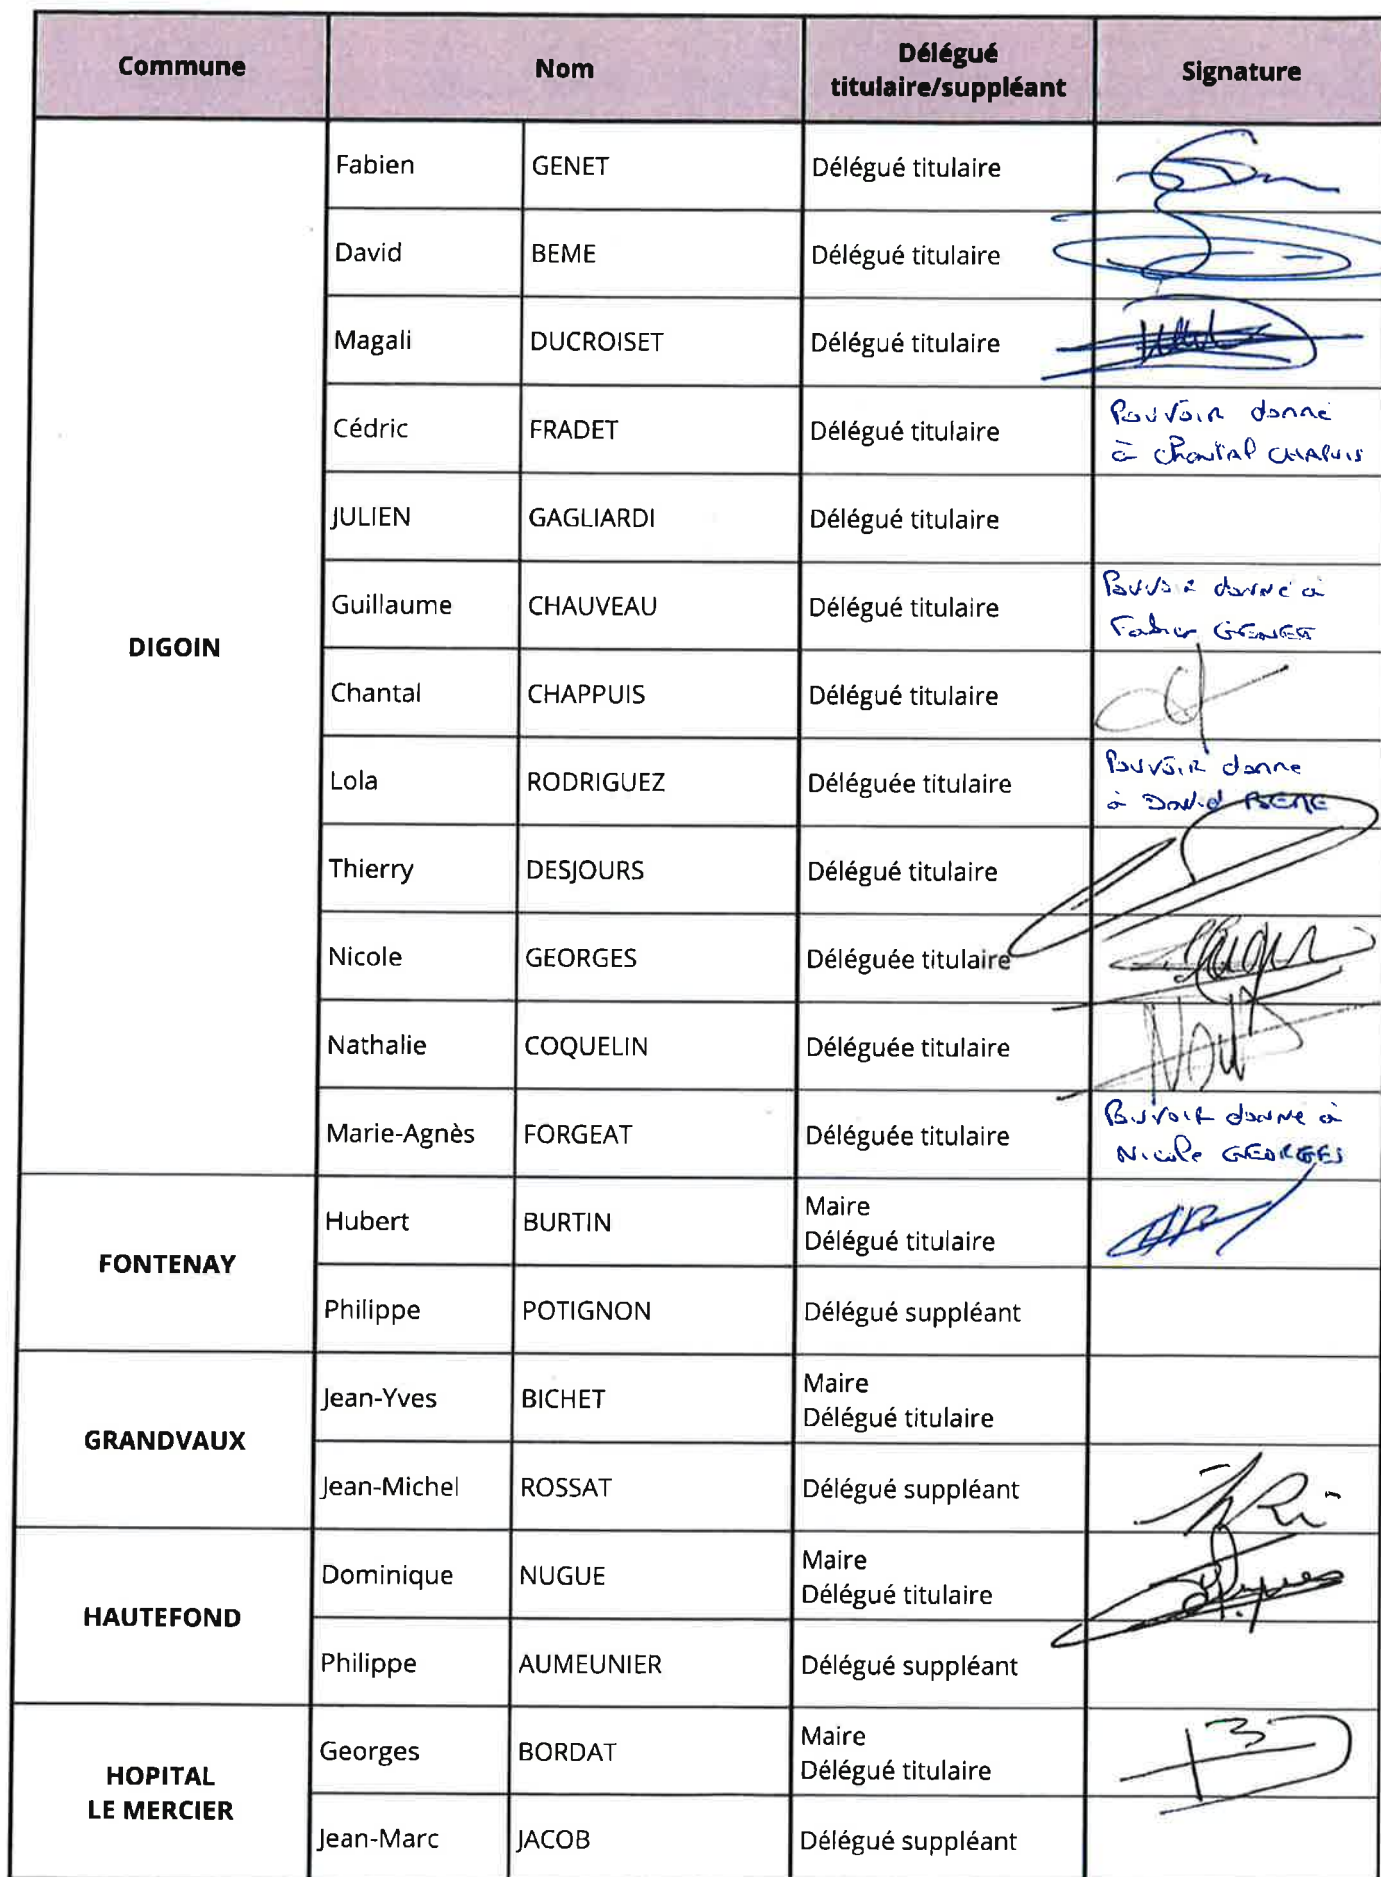 Commune Nom Délégué titulaire/suppléant Signature
DIGOIN
Fabien GENET Délégué titulaire
David BEME Délégué titulaire
Magali DUCROISET Délégué titulaire
Cédric FRADET Délégué titulaire Pouvoir donné
à Chantal CHAPUIS
JULIEN GAGLIARDI Délégué titulaire
Guillaume CHAUVEAU Délégué titulaire Pouvoir donné à
Fabien GENET
Chantal CHAPPUIS Délégué titulaire
Lola RODRIGUEZ Déléguée titulaire Pouvoir donné
à David BEME
Thierry DESJOURS Délégué titulaire
Nicole GEORGES Déléguée titulaire
Nathalie COQUELIN Déléguée titulaire
Marie-Agnès FORGEAT Déléguée titulaire Pouvoir donné à
Nicole GEORGES
FONTENAY
Hubert BURTIN Maire
Délégué titulaire
Philippe POTIGNON Délégué suppléant
GRANDVAUX
Jean-Yves BICHET Maire
Délégué titulaire
Jean-Michel ROSSAT Délégué suppléant
HAUTEFOND
Dominique NUGUE Maire
Délégué titulaire
Philippe AUMEUNIER Délégué suppléant
HOPITAL
LE MERCIER
Georges BORDAT Maire
Délégué titulaire
Jean-Marc JACOB Délégué suppléant